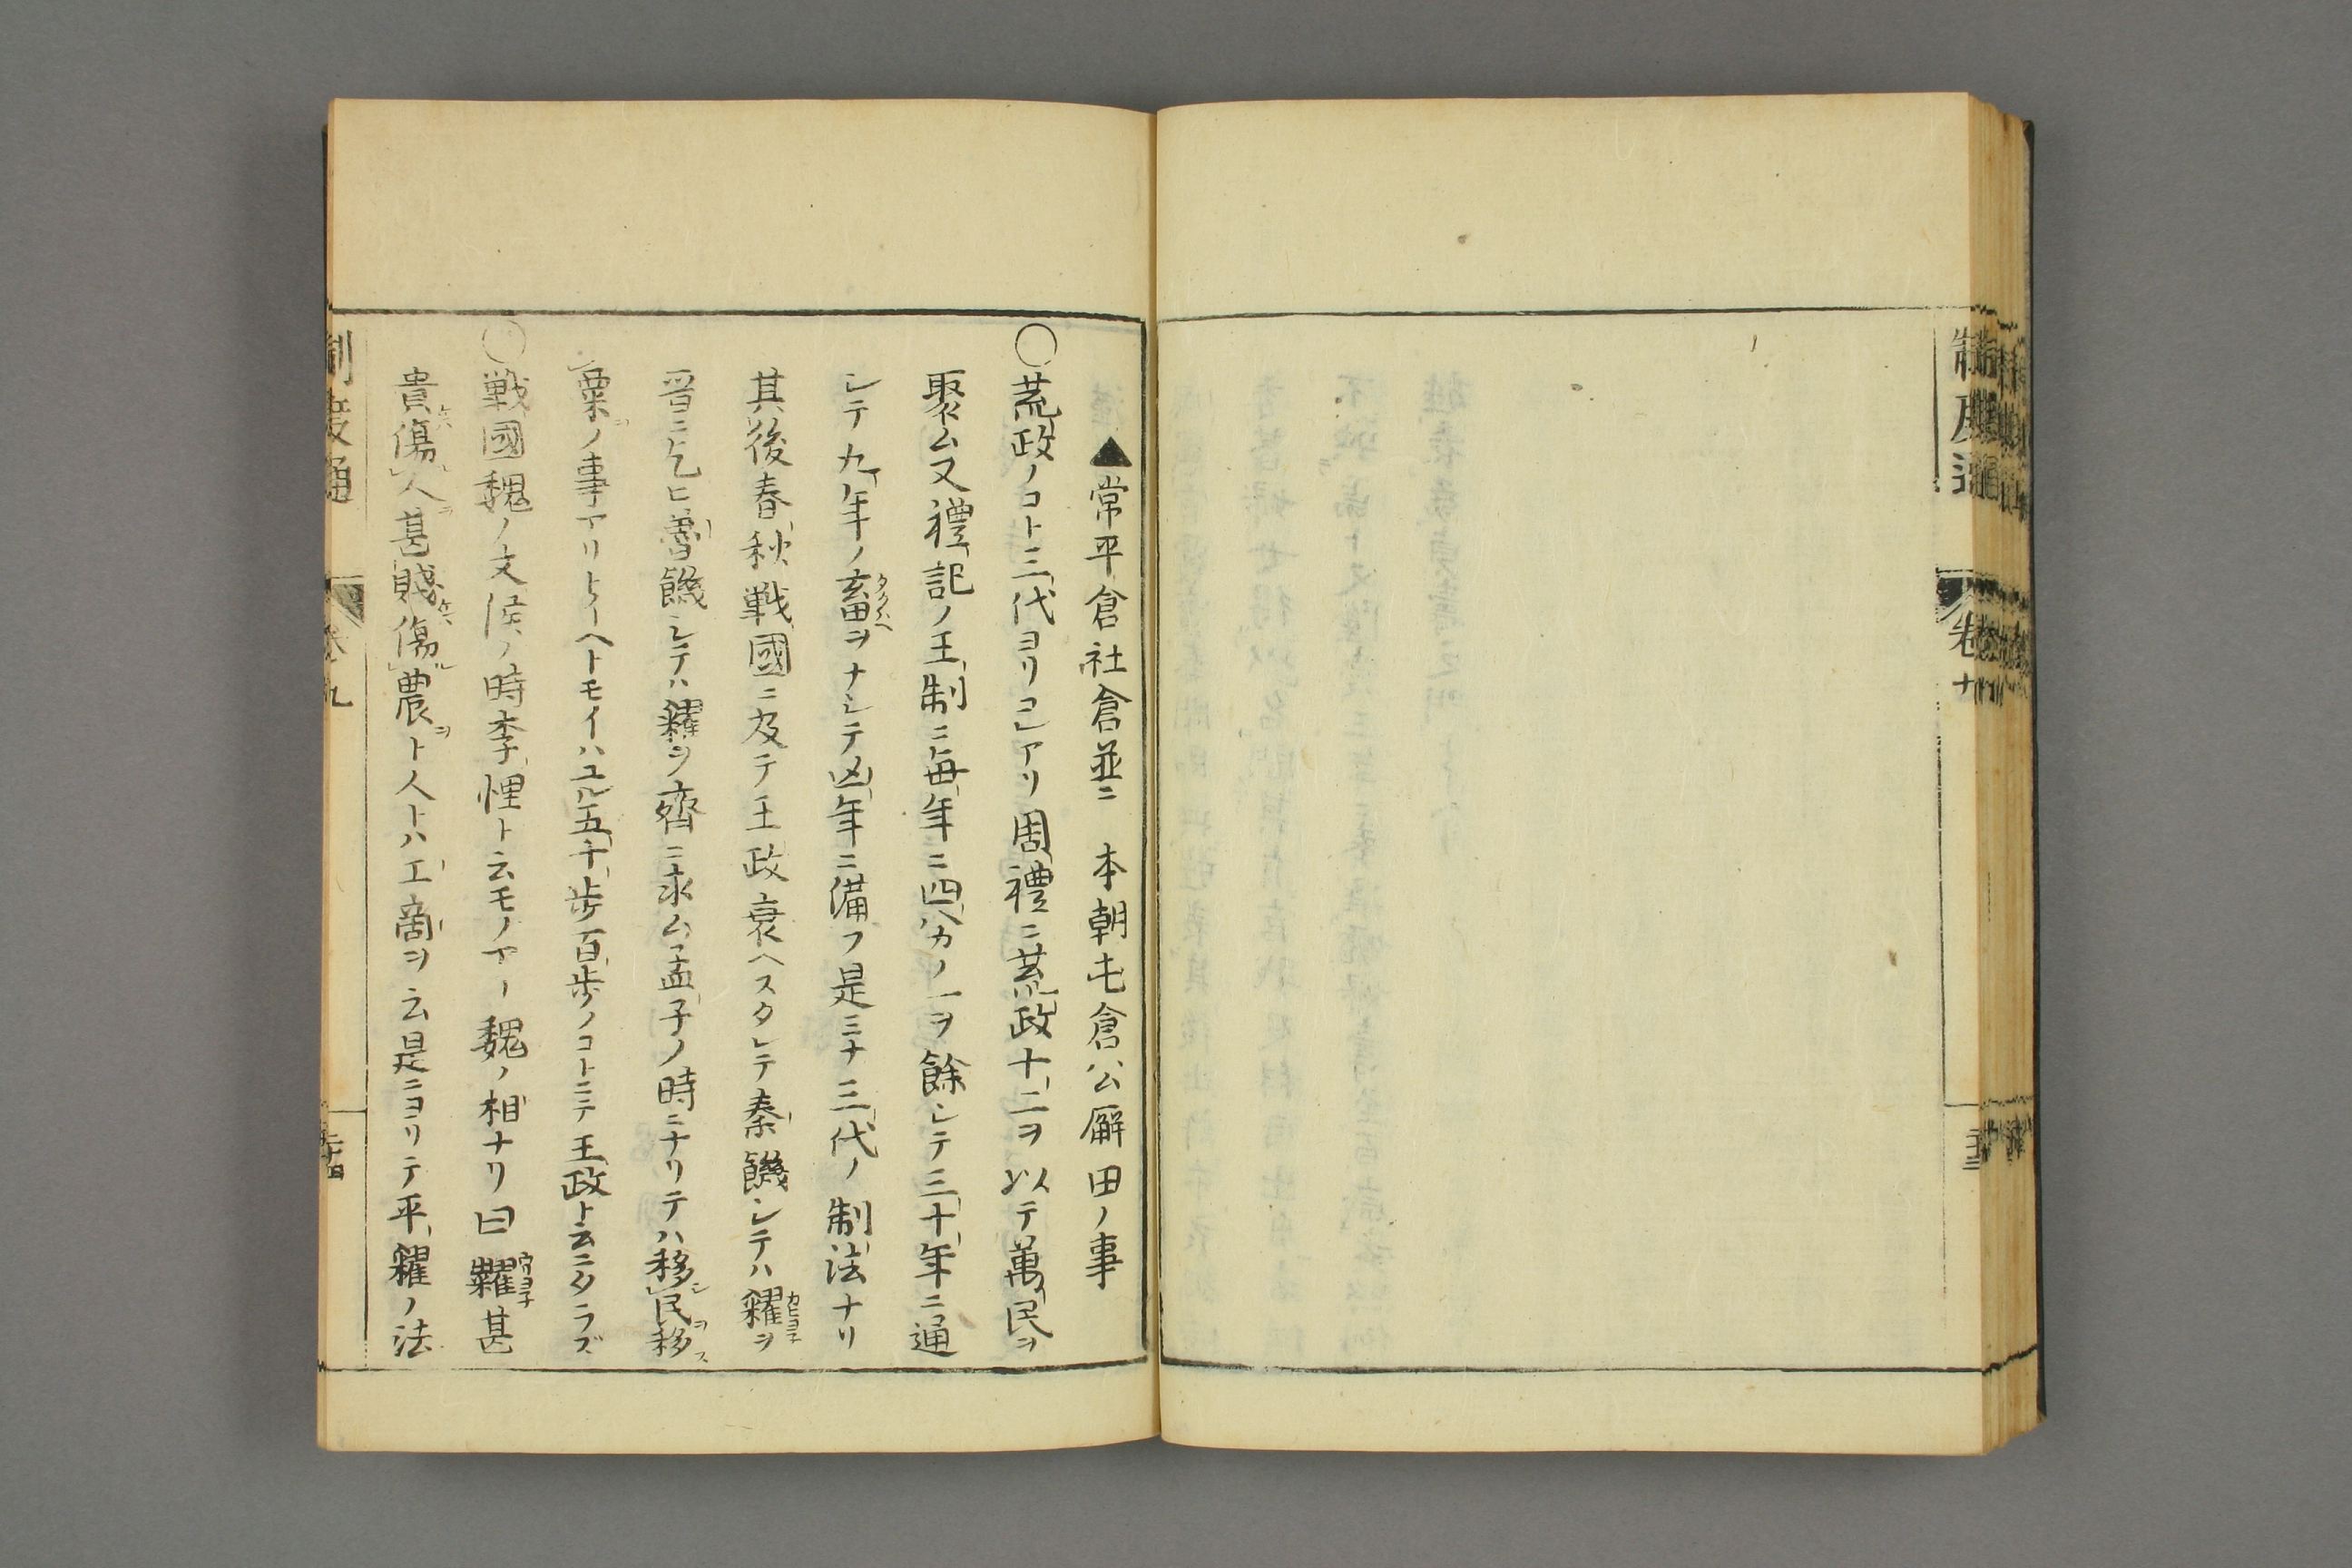 ▲常平倉社倉並ニ　本朝屯倉公廨田ノ事
○荒政ノコト三代ヨリコレアリ周禮ニ荒政十二ヲ以テ萬民ヲ
聚ム又禮記ノ王制ニ毎年ニ四ツカノ一ヲ餘シテ三十年ニ通
シテ九年ノ畜タクハヘヲナシテ凶年ニ備フ是ミナ三代ノ制法ナリ
其後春秋戰國ニ及テ王政衰ヘスタレテ秦饑シテハ糴カヒヨネヲ
晋ニ乞ヒ魯饑シテハ糴ヲ齊ニ求ム孟子ノ時ニナリテハ移シ民ヲ移ス
粟ヲノ事アリトイヘトモイハユル五十歩百歩ノコトニテ王政ト云ニタラズ
○戰國魏ノ文侯ノ時李悝ト云モノアリ魏ノ相ナリ曰糶ウリヨネ甚
貴傷人ヲ甚賤傷農ヲト人トハ工商ヲ云是ニヨリテ平糴ノ法
制度通
卷九
制度通
卷九